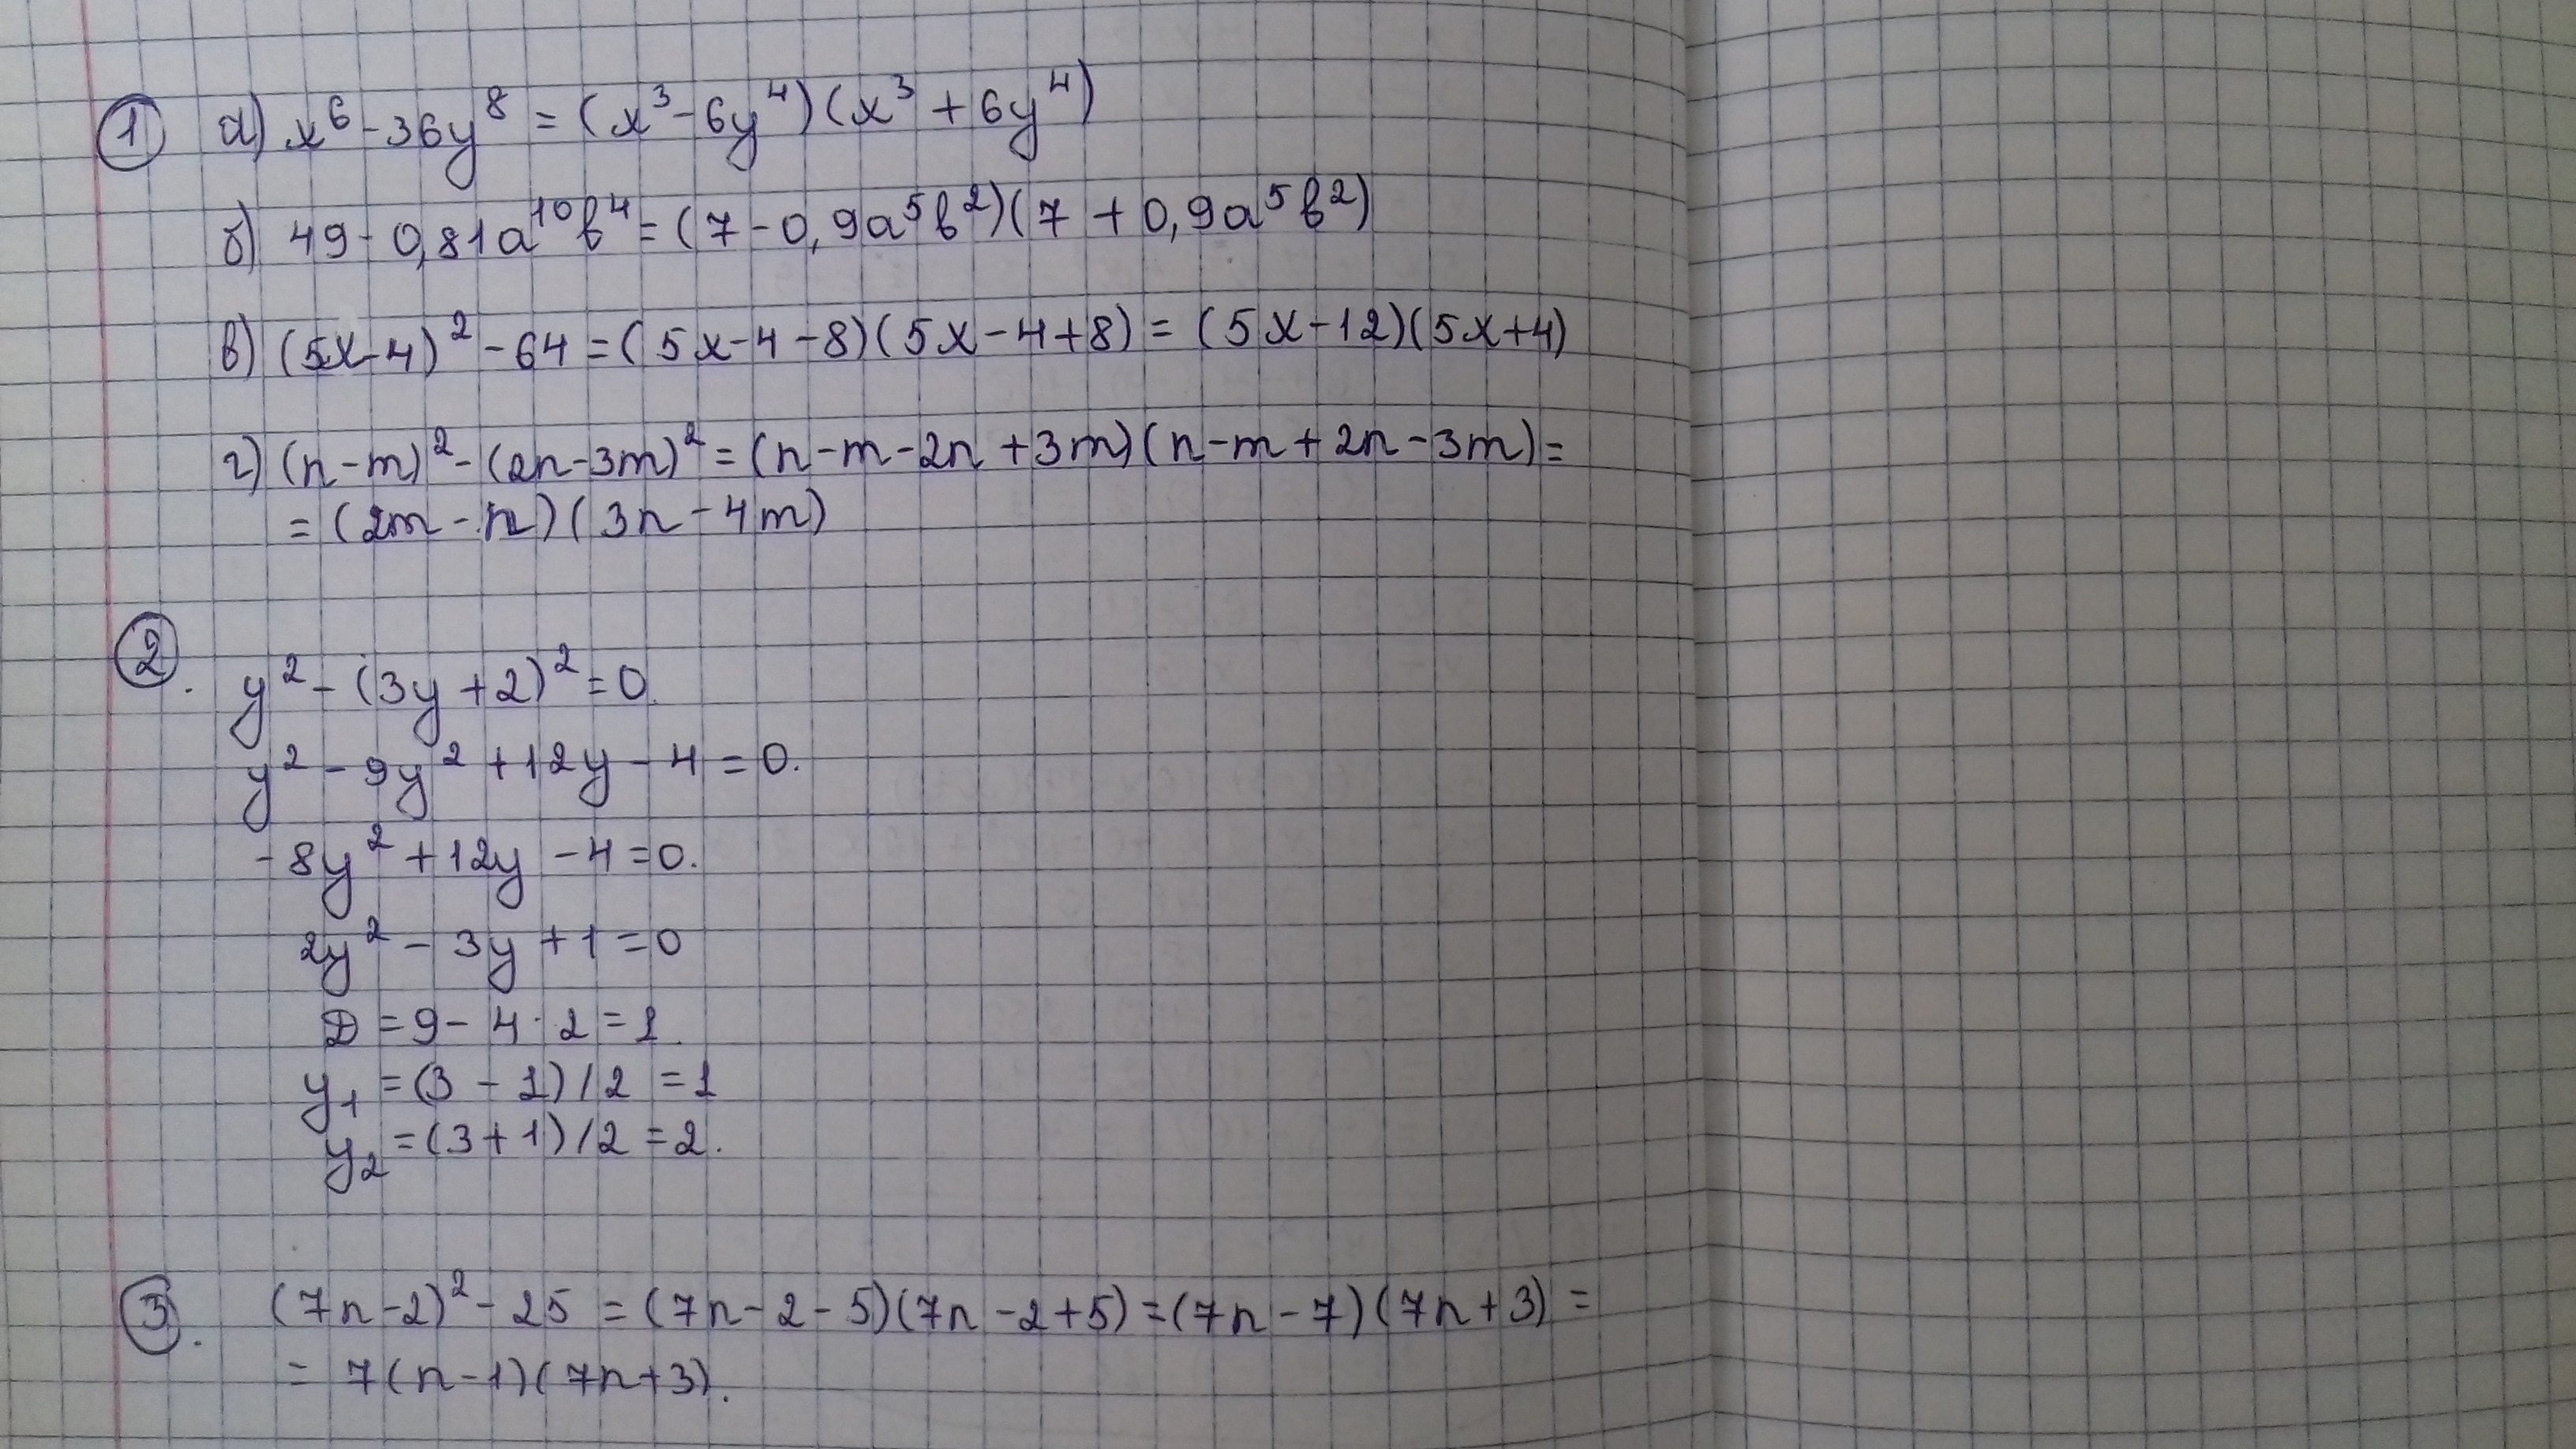 ① а) x⁶-36y⁸ = (x³-6y⁴)(x³+6y⁴)
б) 49-0,81a¹⁰b⁴ = (7-0,9a⁵b²)(7+0,9a⁵b²)
в) (5x-4)²-64 = (5x-4-8)(5x-4+8) = (5x-12)(5x+4)
г) (n-m)²-(2n-3m)² = (n-m-2n+3m)(n-m+2n-3m) =
= (2m-n)(3n-4m)
②.
y²-(3y+2)²=0.
y²-9y²+12y-4=0.
-8y²+12y-4=0.
2y²-3y+1=0
D=9-4·2=1.
y₁=(3-1)/2=1
y₂=(3+1)/2=2.
③. (7n-2)²-25 = (7n-2-5)(7n-2+5) = (7n-7)(7n+3) =
= 7(n-1)(7n+3).